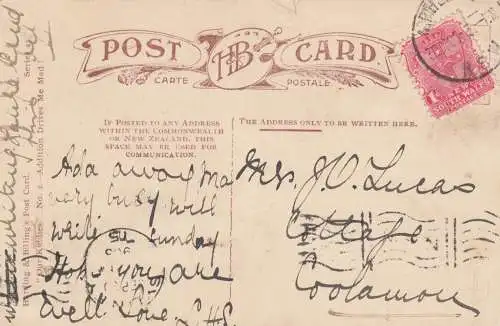 POST CARD.
H&B
CARTE POSTALE
IF POSTED TO ANY ADDRESS
WITHIN THE COMMONWEALTH
OR NEW ZEALAND, THIS
SPACE MAY BE USED FOR
COMMUNICATION.
THE ADDRESS ONLY TO BE WRITTEN HERE.
Post Card.
Series
"No. 2. Addition Drives Me Mad."
SOUTH WALES
Ada away Ma
very busy will
write Sunday
Hope you are
well Love
Mrs. J. O. Lucas
Cottage
Coolamon